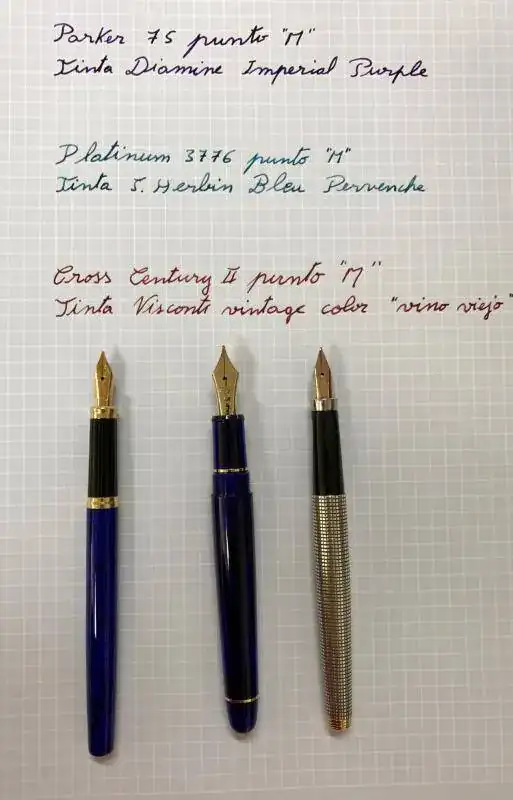 Parker 75 punto "M"
Tinta Diamine Imperial Purple
Platinum 3776 punto "M"
Tinta J. Herbin Bleu Pervenche
Cross Century II punto "M"
Tinta Visconti vintage color "vino viejo"